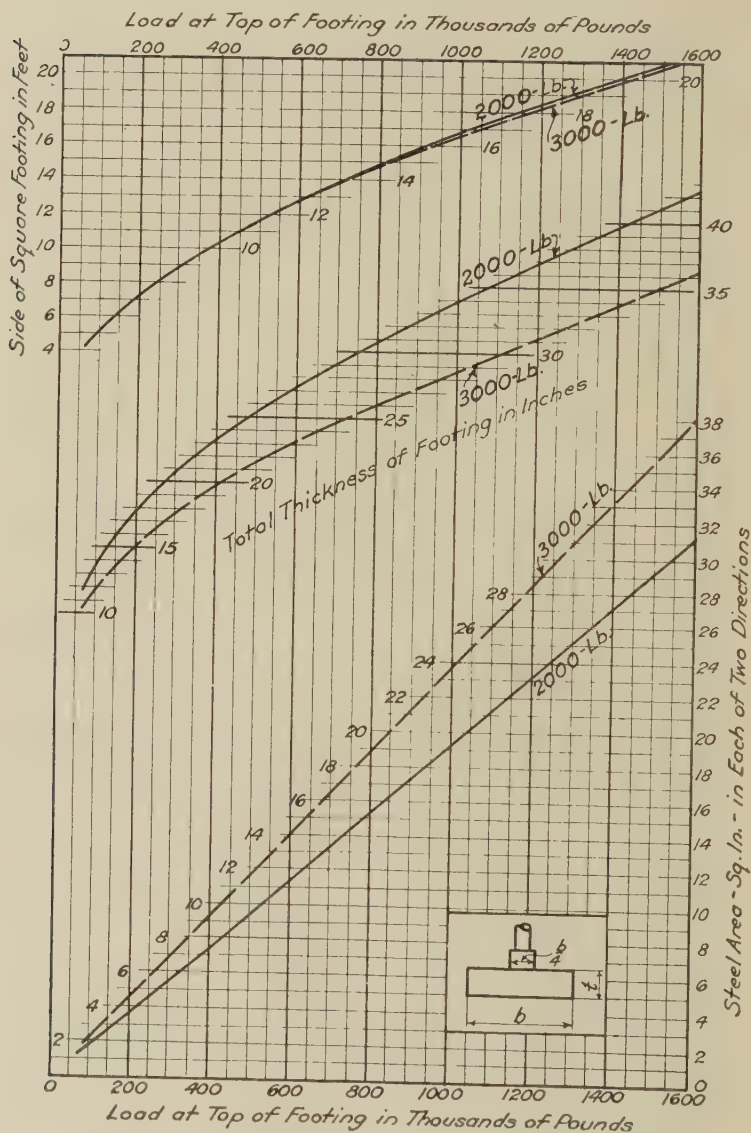 Load at Top of Footing in Thousands of Pounds
0 200 400 600 800 1000 1200 1400 1600
Side of Square Footing in Feet
20
18
16
14
12
10
8
6
4
2000-Lb.
3000-Lb.
20
18
16
14
12
10
2000-Lb.
40
35
30
3000-Lb.
25
20
15
10
Total Thickness of Footing in Inches
3000-Lb.
2000-Lb.
28
26
24
22
20
18
16
14
12
10
8
6
4
2
38
36
34
32
30
28
26
24
22
20
18
16
14
12
10
8
6
4
2
0
Steel Area - Sq. In. - in Each of Two Directions
b
4
t
b
0 200 400 600 800 1000 1200 1400 1600
Load at Top of Footing in Thousands of Pounds